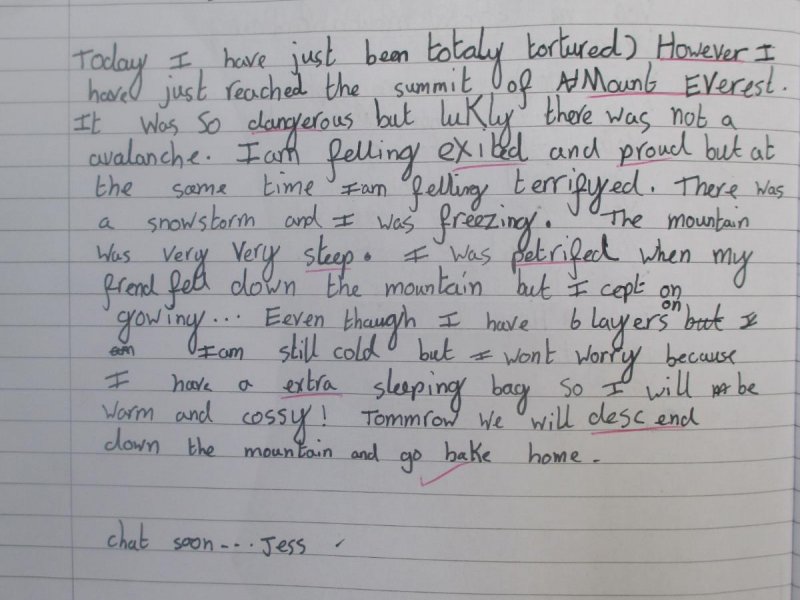 Today I have just been totaly tortured) However I
have just reached the summit of Mount Everest.
It was so dangerous but lukly there was not a
avalanche. I am felling exited and proud but at
the same time I am felling terrifyed. There was
a snowstorm and I was freezing. The mountain
was very very steep. I was petrifed when my
frend fell down the mountain but I cept on
gowiny... Eeven though I have 6 layers on but I
am I am still cold but I wont worry because
I have a extra sleeping bag so I will be
warm and cossy! Tommrow we will descend
down the mountain and go bake home.
chat soon... Jess